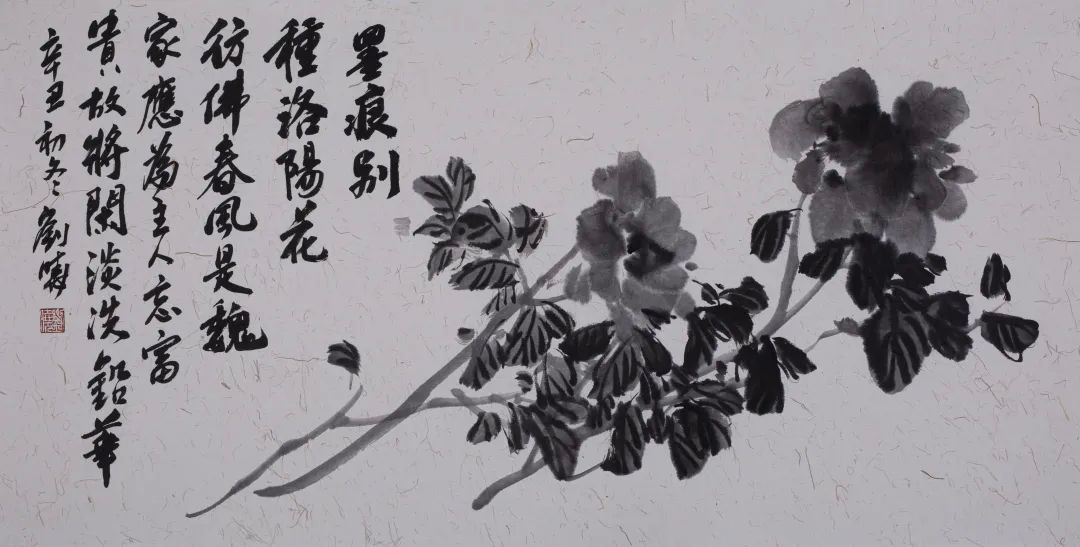 墨痕别
種洛陽花
彷佛春風是魏
家應為主人忘富
貴故將閑淡洗鉛華
辛丑初冬劉